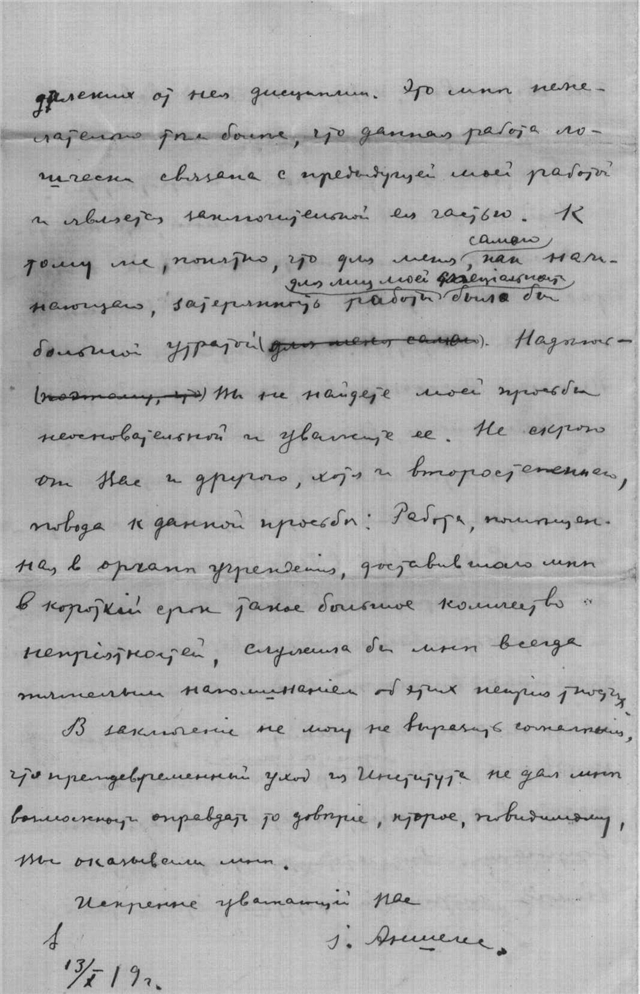 далеких от нея дисциплин. Это мнѣ неже-
лательно тѣм болѣе, что данная работа ло-
гически связана с предыдущей моей работой
и является заключительной ея частью. К
тому же, понятно, что для меня, как начи-
самого
нающаго, затерянность работы была бы
для лиц моей специальности
большой утратой (для меня самого). Надѣюсь
(поэтому, что) Вы не найдете моей просьбы
неосновательной и уважите ее. Не скрою
от Вас и другого, хотя и второстепеннаго,
повода к данной просьбѣ: Работа, помѣщен-
ная в органѣ учрежденія, доставившаго мнѣ
в короткій срок такое большое количество
непріятностей, служила бы мнѣ всегда
тягостным напоминаніем об этих непріятностях.
В заключеніе не могу не выразить сожалѣнія,
что преждевременный уход из Института не дал мнѣ
возможности оправдать то довѣріе, которое, повидимому,
Вы оказывали мнѣ.
Искренне уважающій Вас
13/X 19 г.